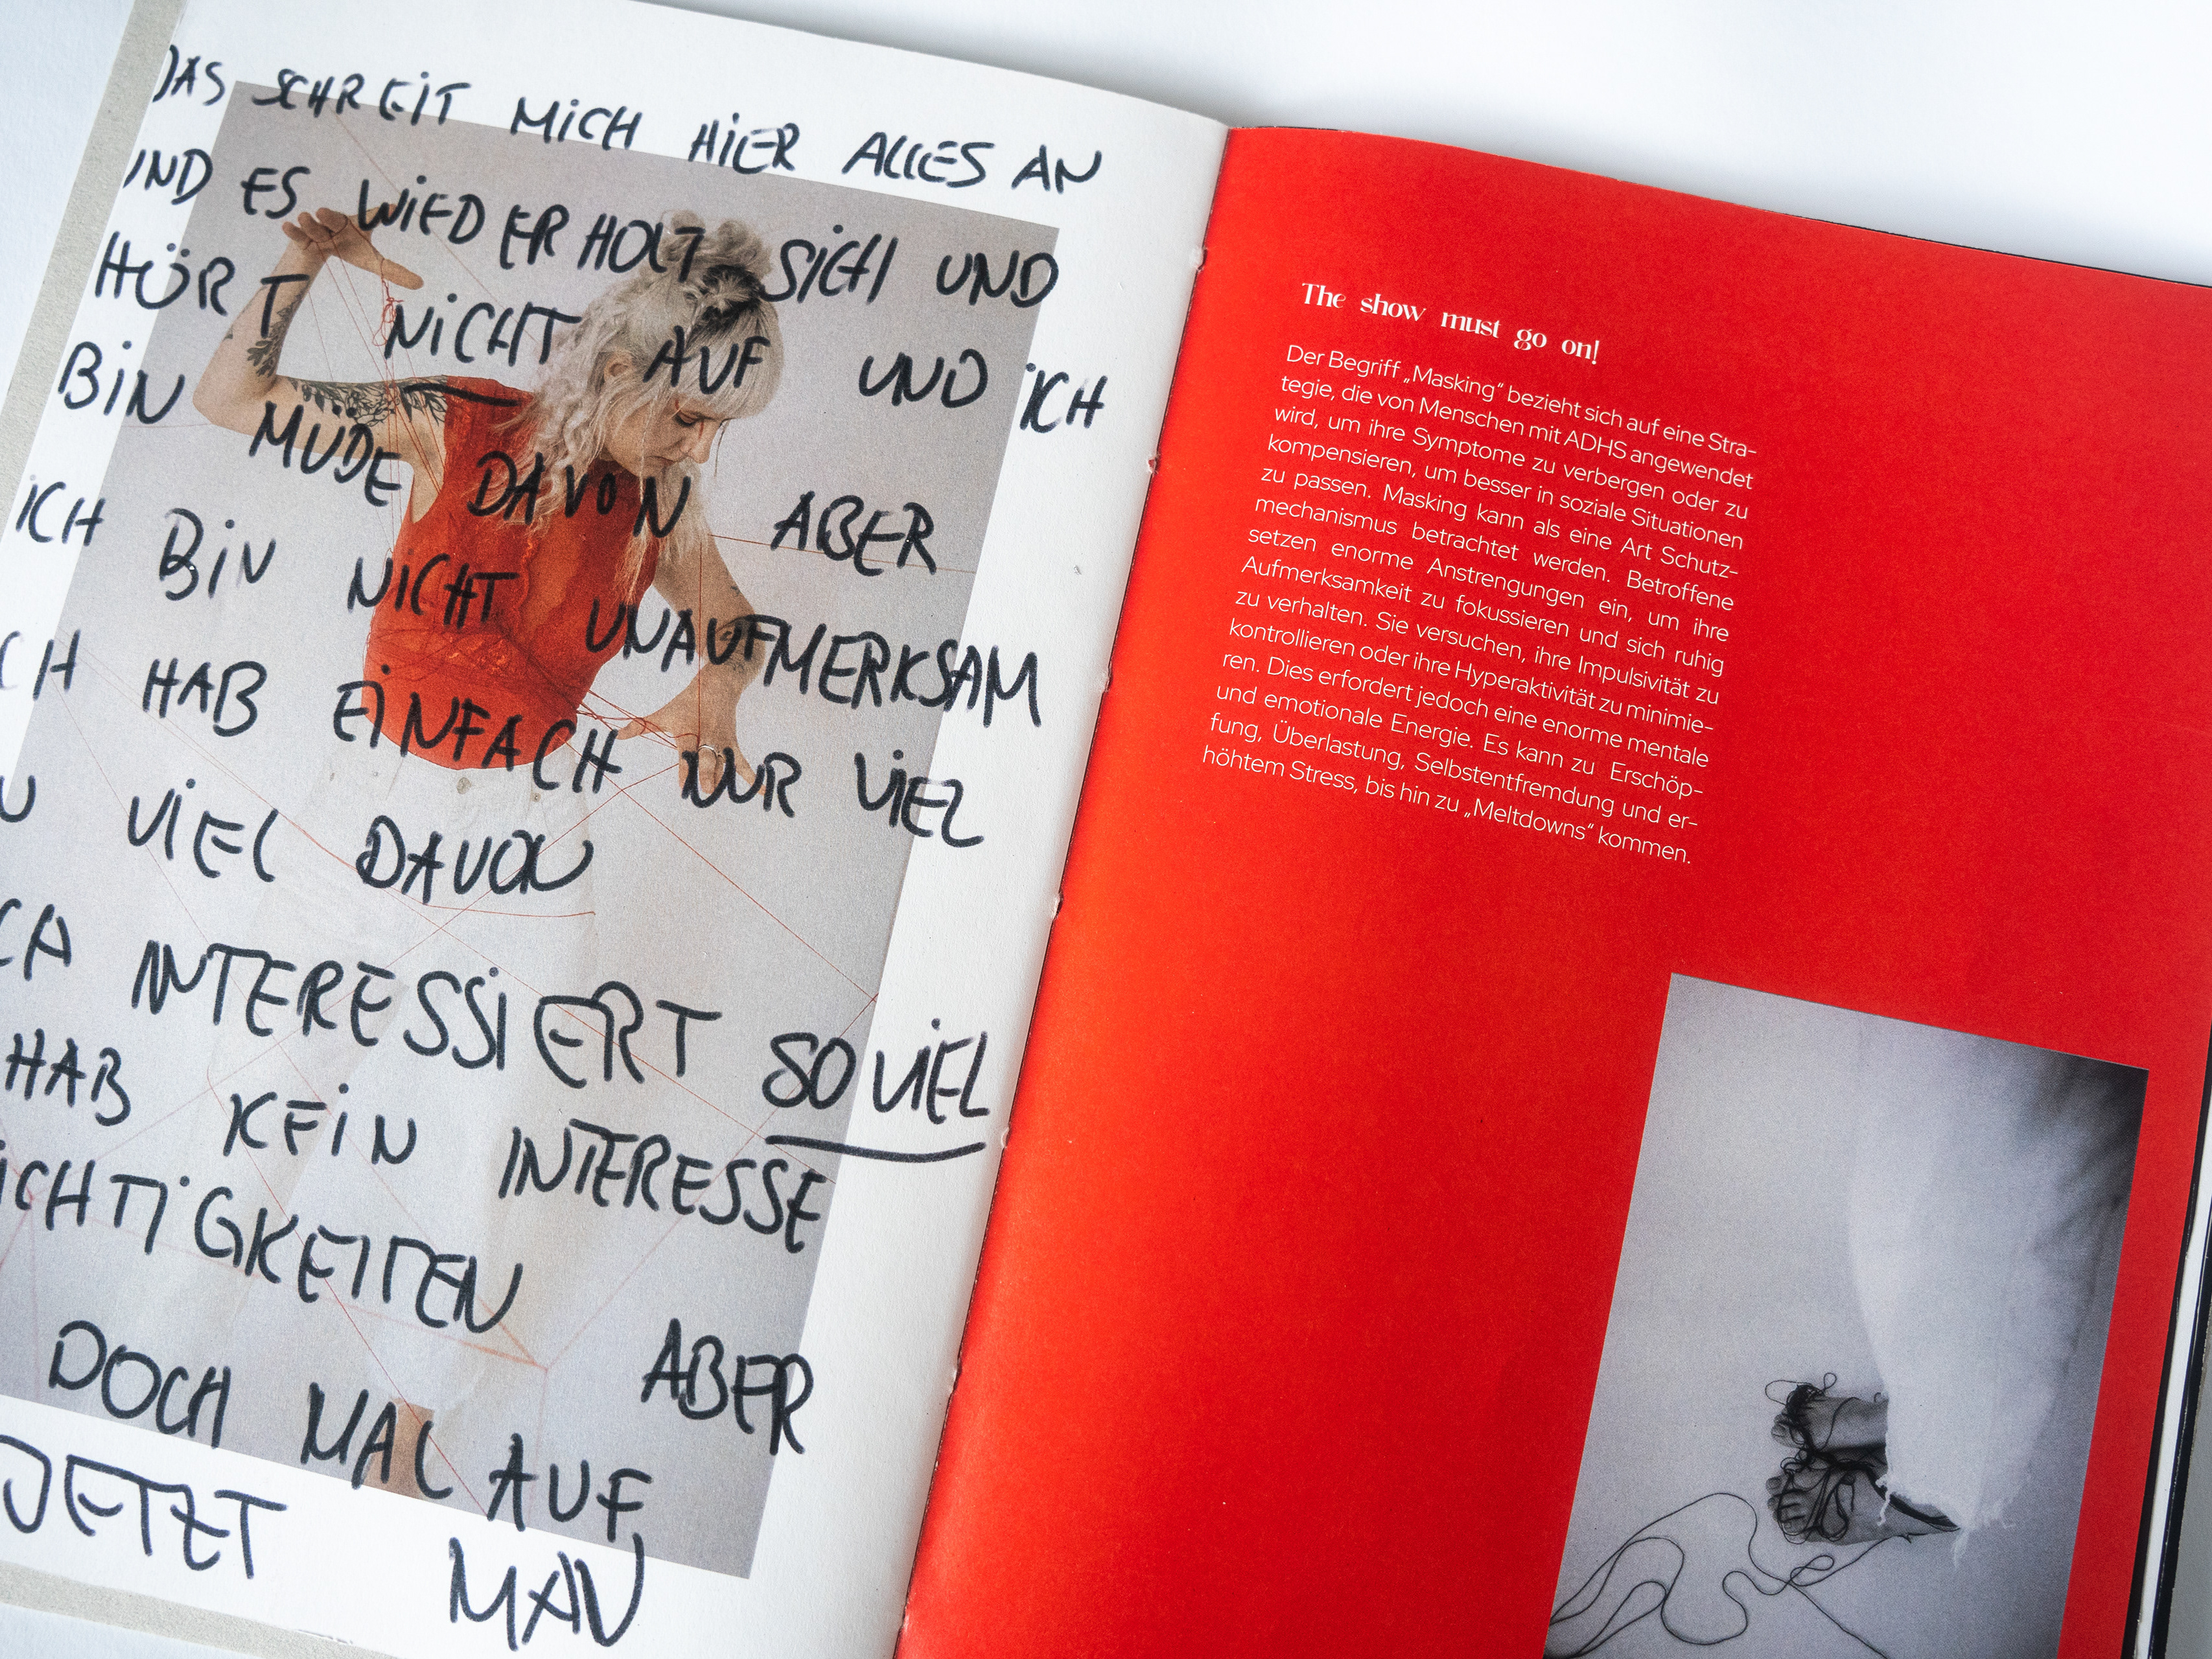 DAS SCHREIT MICH HIER ALLES AN
UND ES WIEDERHOLT SICH UND
HÖRT NICHT AUF UND ICH
BIN MÜDE DAVON ABER
ICH BIN NICHT UNAUFMERKSAM
ICH HAB EINFACH NUR VIEL
ZU VIEL DAVON
ICH INTERESSIERT SO VIEL
HAB KEIN INTERESSE
ICHTIGKEITEN ABER
DOCH MAL AUF
JETZT MAN
The show must go on!
Der Begriff „Masking“ bezieht sich auf eine Stra-
tegie, die von Menschen mit ADHS angewendet
wird, um ihre Symptome zu verbergen oder zu
kompensieren, um besser in soziale Situationen
zu passen. Masking kann als eine Art Schutz-
mechanismus betrachtet werden. Betroffene
setzen enorme Anstrengungen ein, um ihre
Aufmerksamkeit zu fokussieren und sich ruhig
zu verhalten. Sie versuchen, ihre Impulsivität zu
kontrollieren oder ihre Hyperaktivität zu minimie-
ren. Dies erfordert jedoch eine enorme mentale
und emotionale Energie. Es kann zu Erschöp-
fung, Überlastung, Selbstentfremdung und er-
höhtem Stress, bis hin zu „Meltdowns“ kommen.